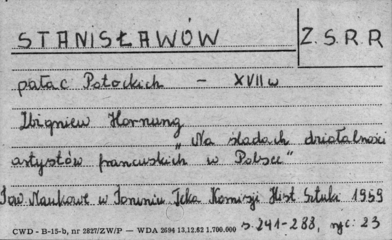 STANISŁAWÓW
Z.S.R.R
pałac Potockich – XVII w
Zbigniew Hornung
„Na śladach działalności
artystów francuskich w Polsce"
Tow. Naukowe w Toruniu Teka Komisji Hist Sztuki 1959
s. 241-288, ryc: 23
CWD - B-15-b, nr 2827/ZW/P — WDA 2694 13.12.62 1.700.000